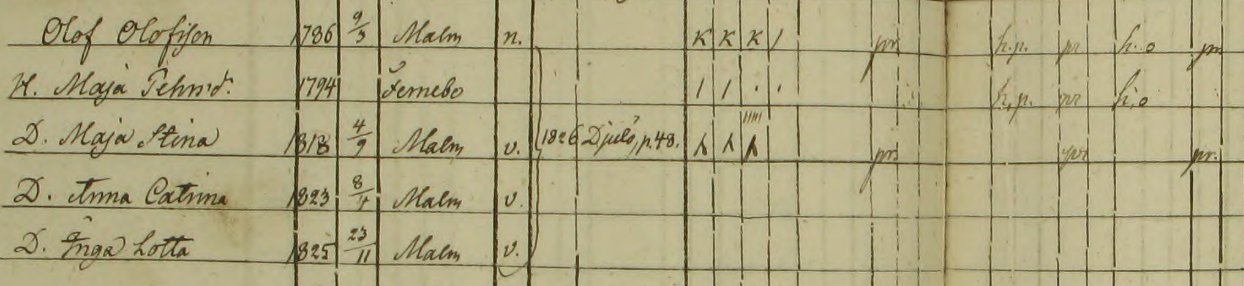 Olof Olofsson 1786 9/3 Malm n. K K K / pr h.p. pr h.o pr
H. Maja Pehrsd. 1794 Fernebo / / . . h.p. pr h.o
D. Maja Stina 1818 4/9 Malm v. 1826 Djulö, p. 48. pr. pr pr.
D. Anna Catrina 1823 8/4 Malm v.
D. Inga Lotta 1825 23/11 Malm v.